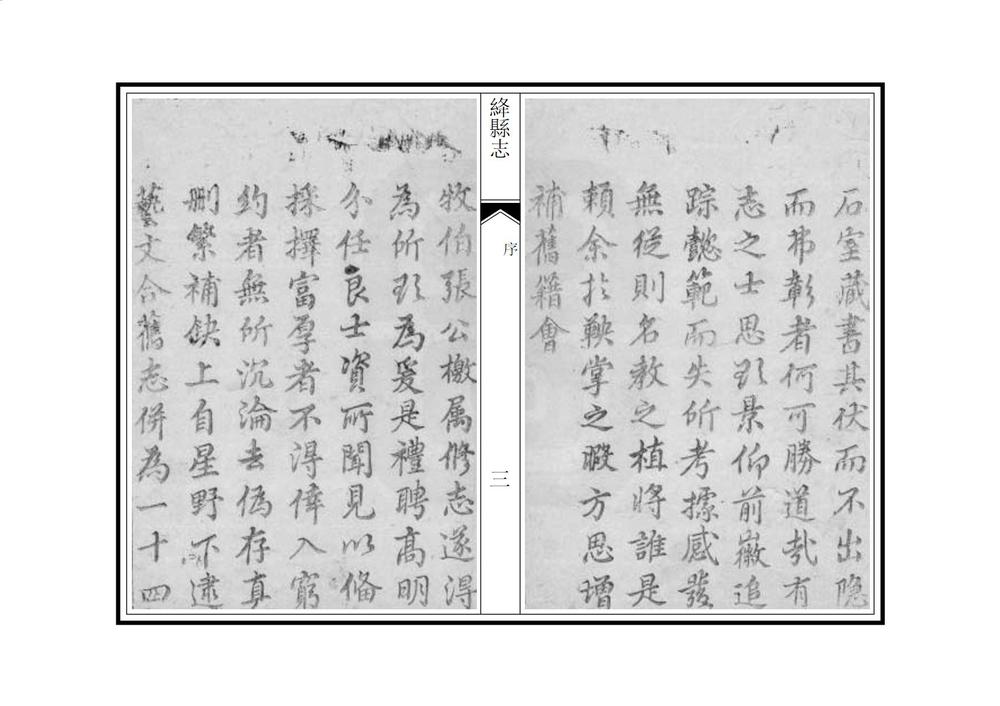 石室藏書其伏而不出隐
而弗彰者何可勝道㢤有
志之士思欲景仰前徽追
踪懿範而失所考據感發
無從則名教之植將誰是
賴余扵鞅掌之暇方思增
補舊籍會
絳縣志
序
三
牧伯張公檄属修志遂得
為所欲為爰是禮聘高明
分任良士資所聞見以俻
採擇富厚者不得倖入窮
約者無所沉淪去偽存真
刪繁補缺上自星野下逮
藝文合舊志併為一十四